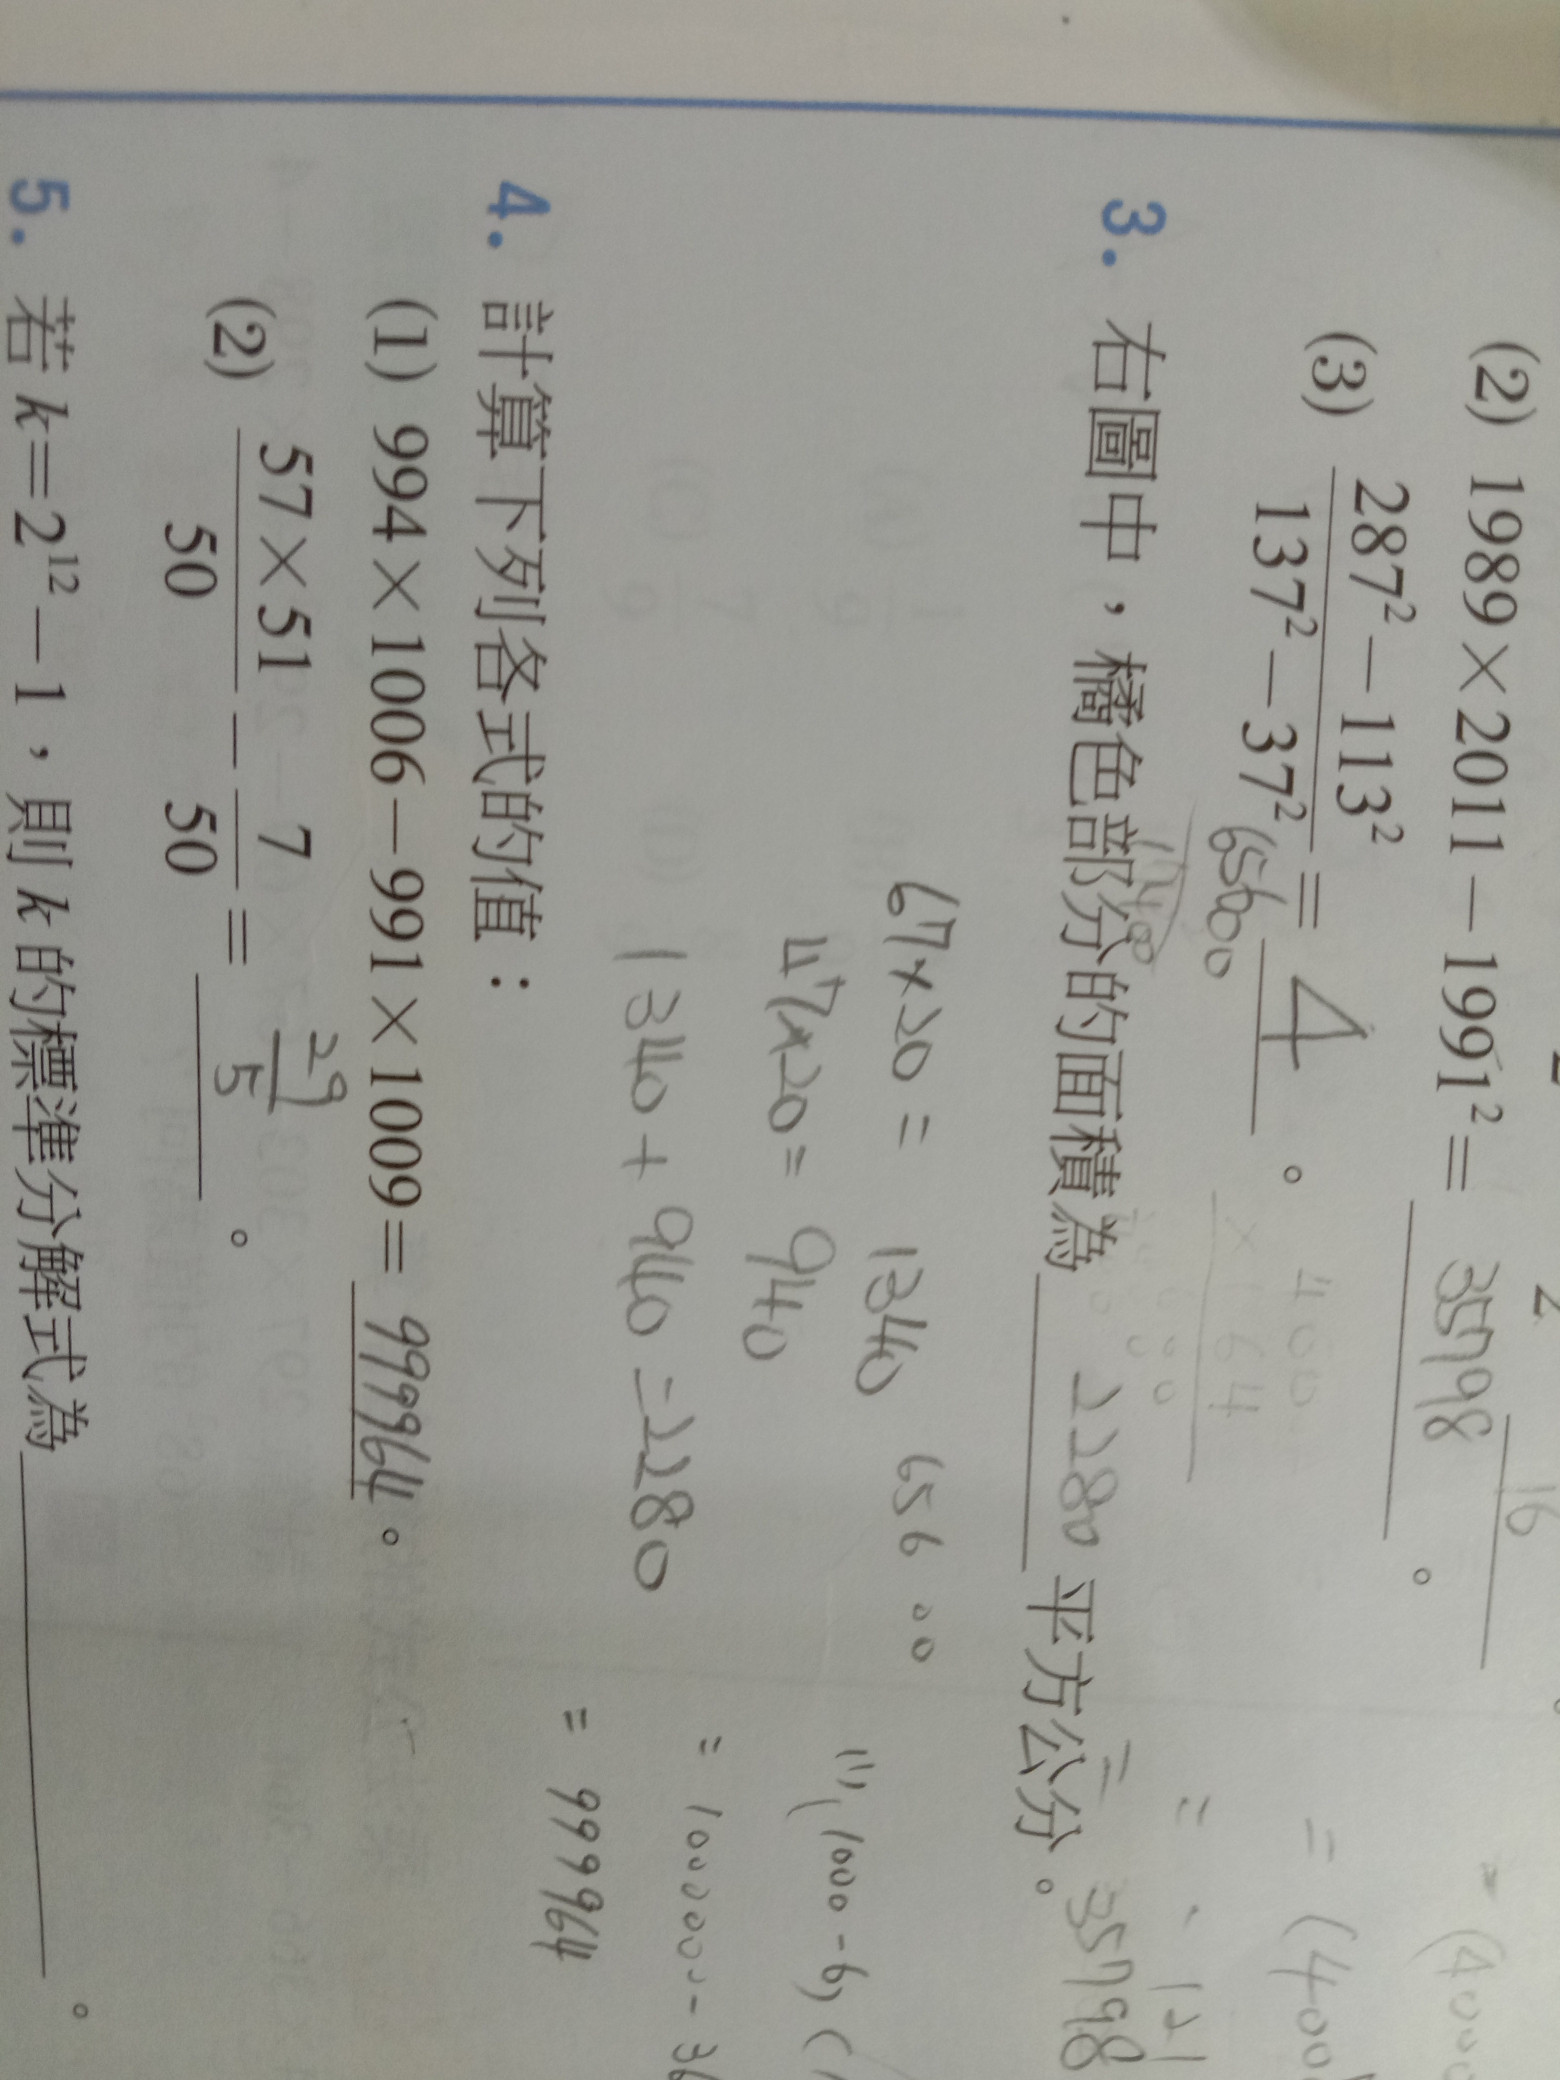 (2) 1989×2011－1991²＝ 35798 。
16
(3) 287²－113² / 137²－37² ＝ 4 。
65600
3. 右圖中，橘色部分的面積為 2280 平方公分。
67×20 = 1340
65600
47×20 = 940
1340 + 940 = 2280
4. 計算下列各式的值：
(1) 994×1006－991×1009＝ 999964 。
(2) 57×51 / 50 － 7 / 50 ＝ 29/5 。
5. 若 k＝2¹²－1，則 k 的標準分解式為 。
= (4000
= (400
121
35798
(1) (1000-6) (
= 1000000 - 36
= 999964